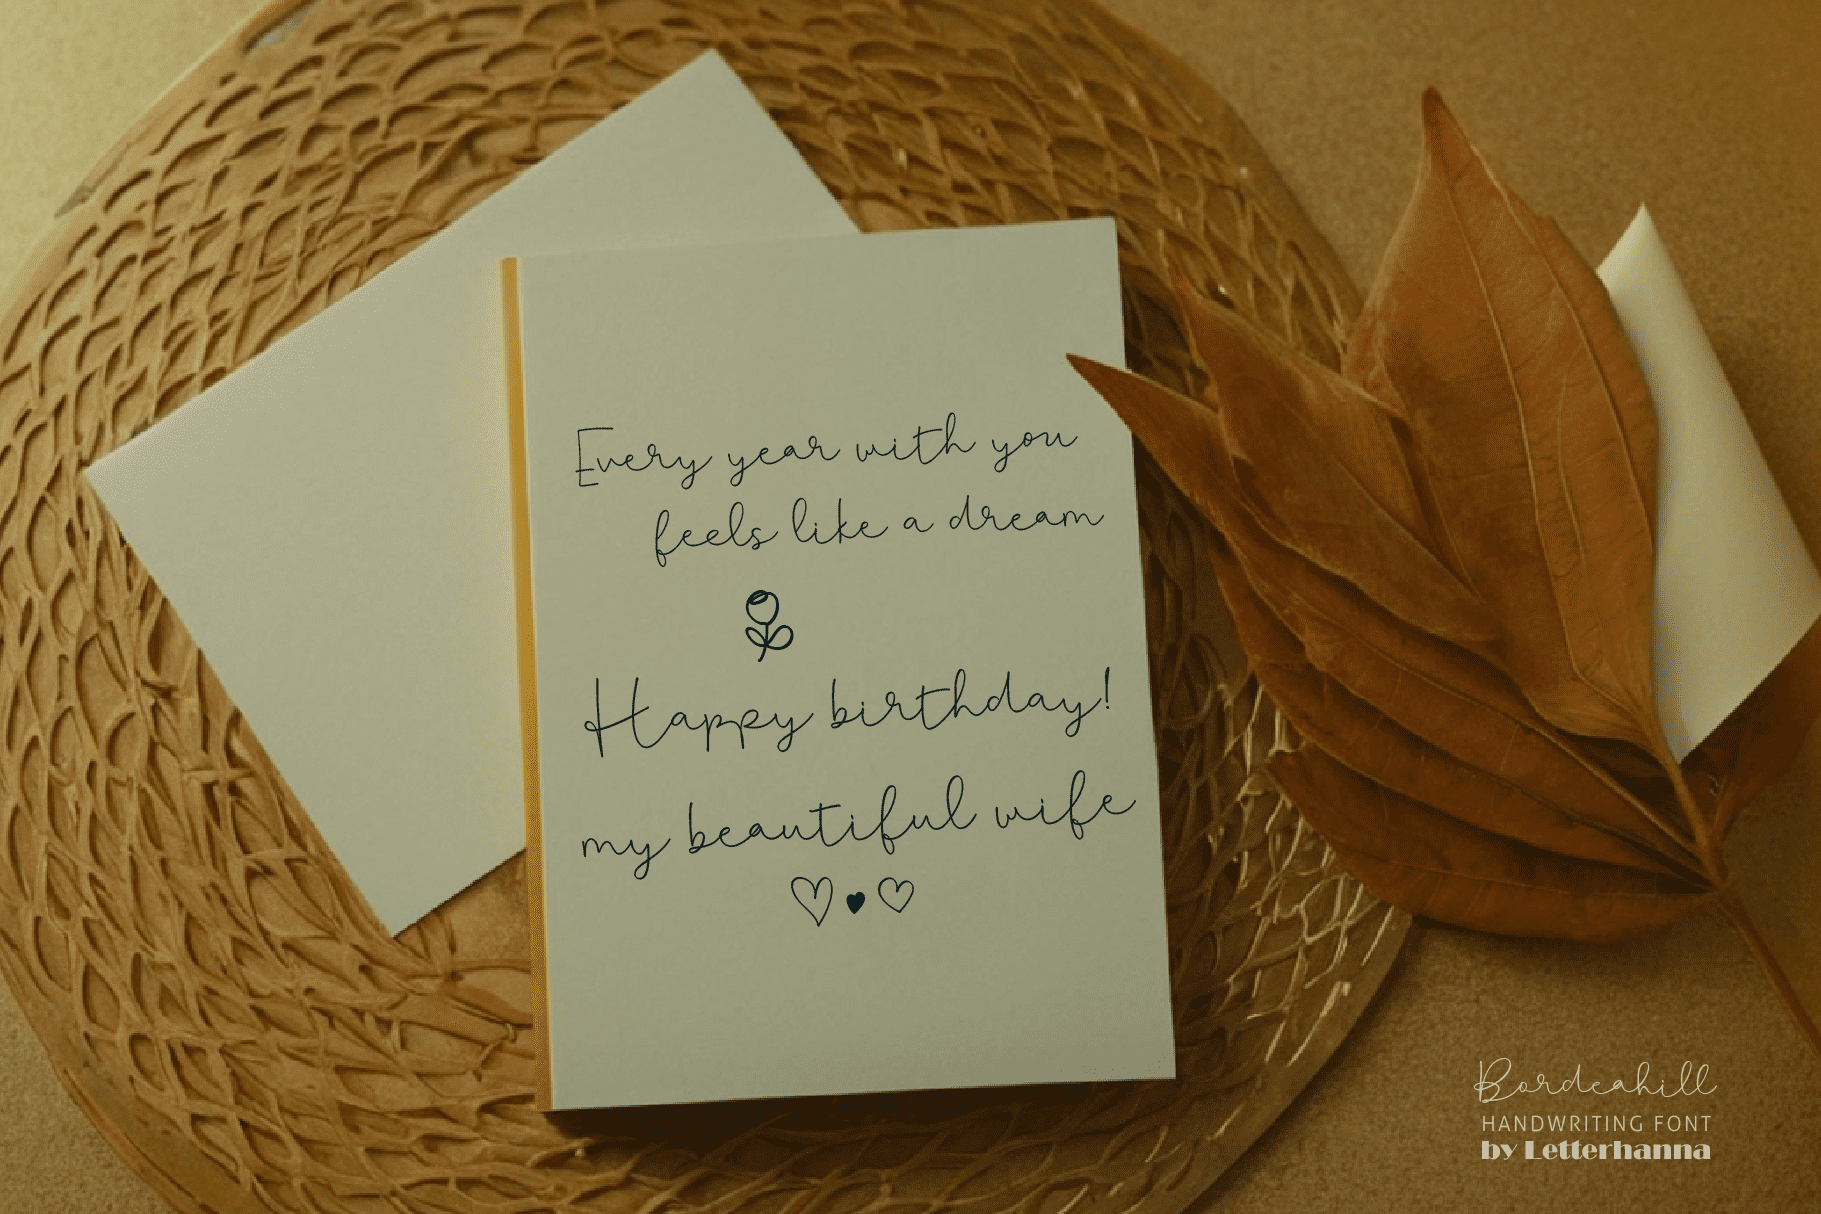 Every year with you
feels like a dream
Happy birthday!
my beautiful wife
Bordeahill
HANDWRITING FONT
by Letterhanna